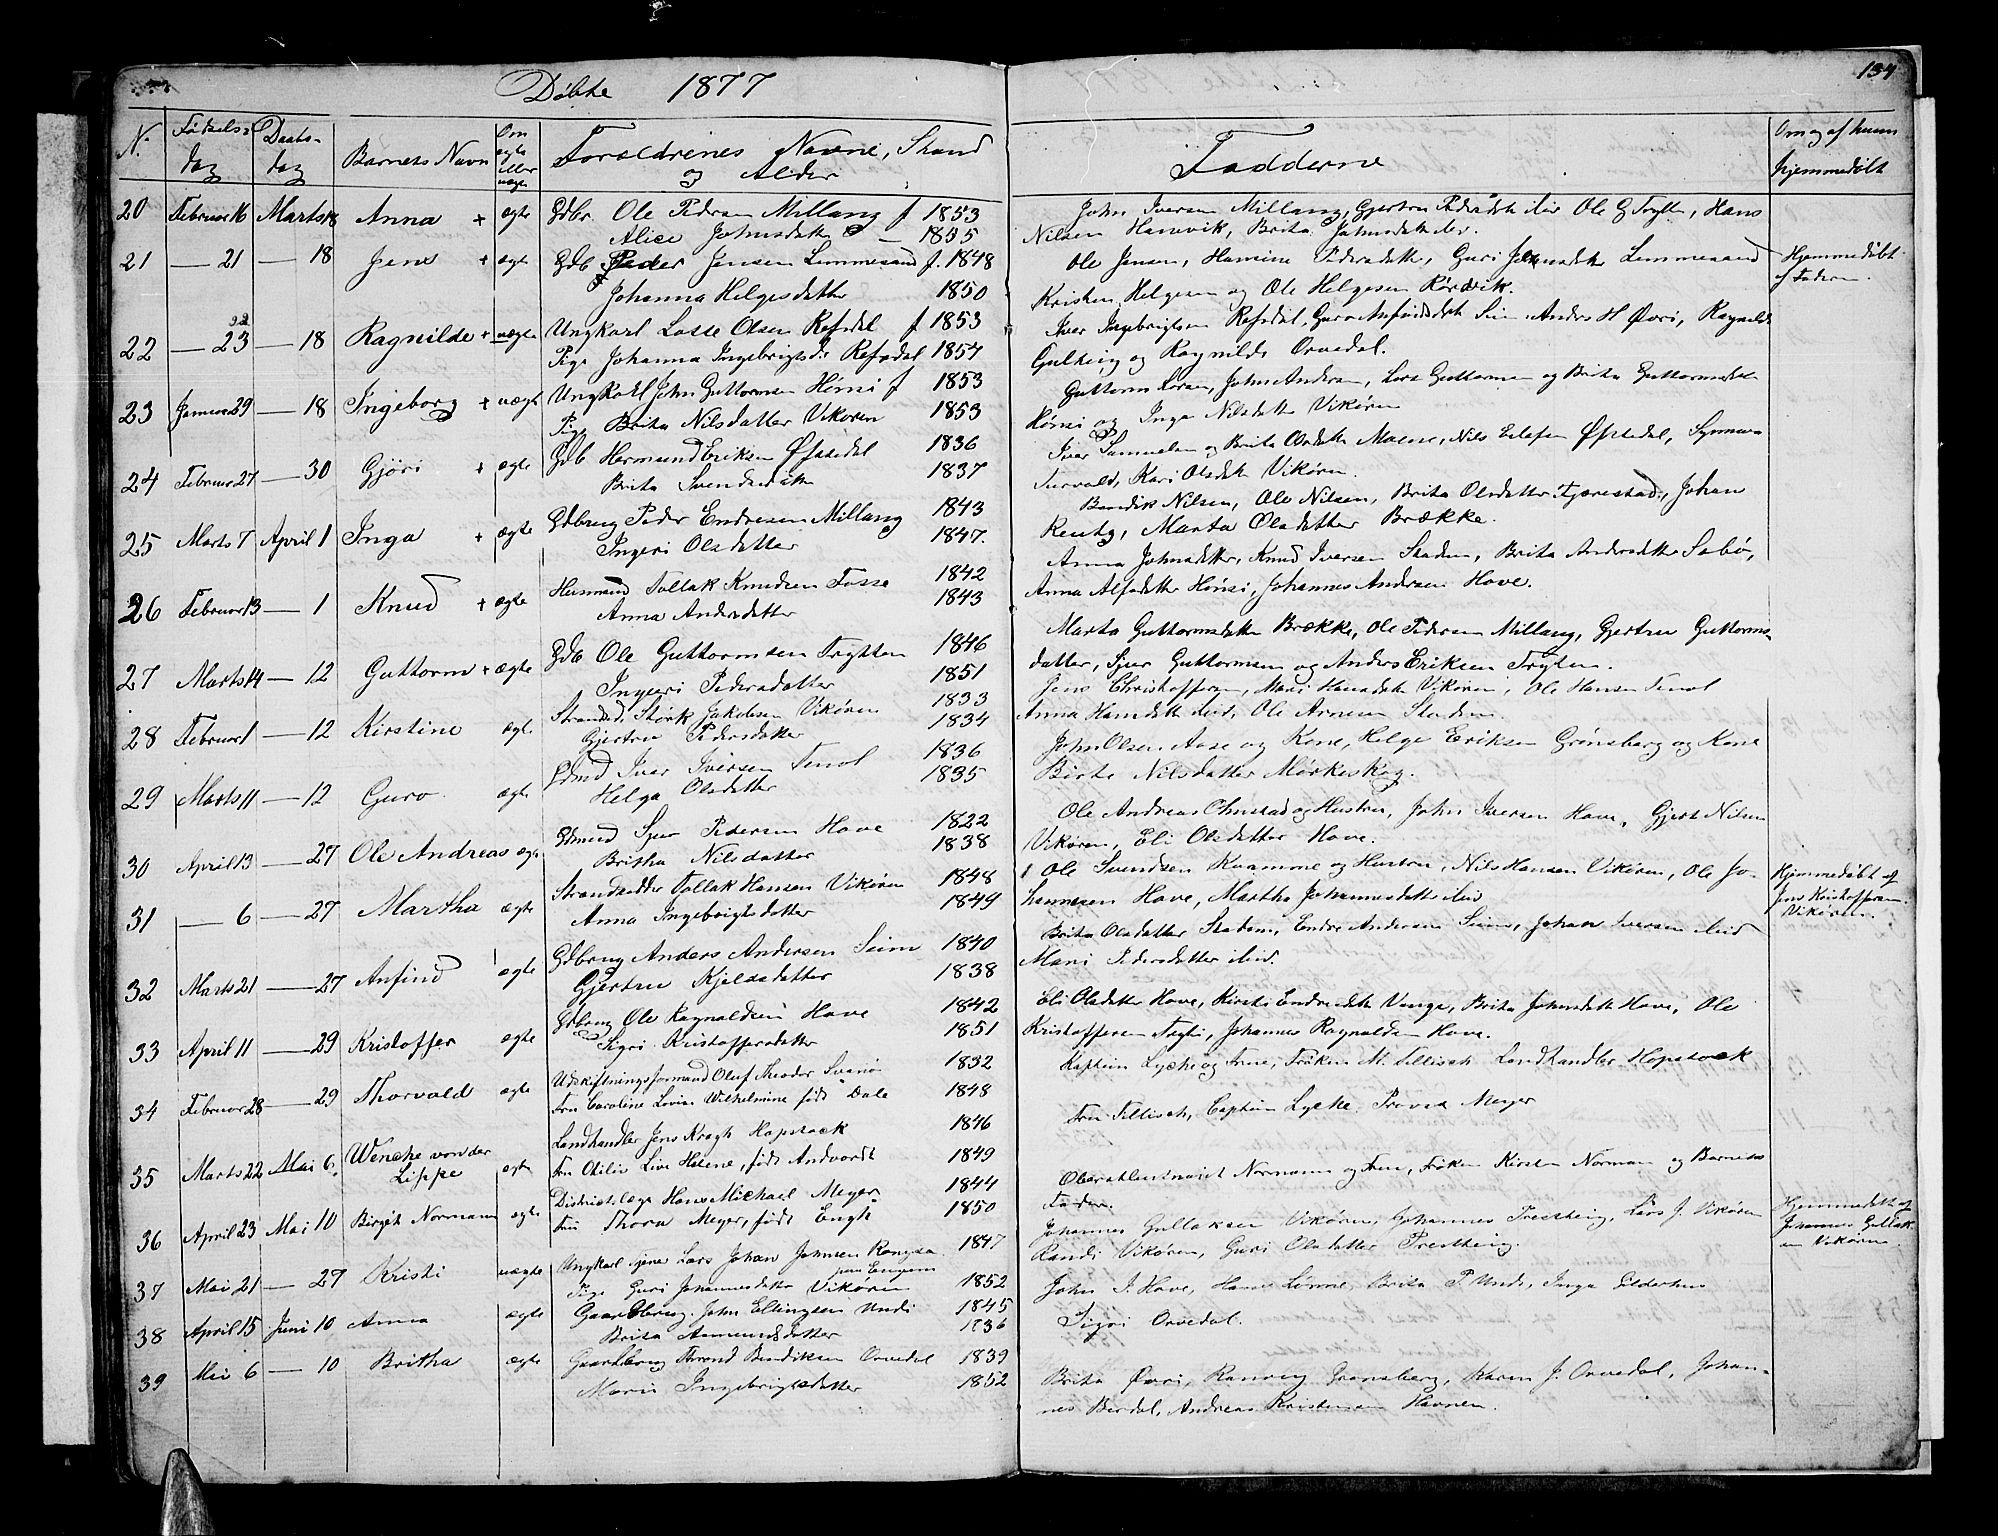 Døbte 1877
134
N.
Fødsels-
dag
Daabs-
dag
Barnets Navn
Om
ægte
eller
uægte
Forældrenes Navne, Stand
og Alder
Fadderne
Om og af hvem
hjemmedøbt
20 Februar 16 Marts 18 Anna + ægte Gdbr Ole Pedersen Millang f 1853
Alice Johnsdatter — 1855
John Iversen Millang, Gjertru Pedersdtr ibid Ole G Trytten, Hans
Nilsen Hamvik, Brita Johnsdatter
21 — 21 — 18 Jens + ægte Gdb Peder Jensen Limmesand f. 1848
Johanna Helgesdatter 1850
Ole Jensen, Hansine Pedersdatter, Guri Limmesand
Kristen Helgesen og Ole Helgesen Rørvik.
Hjemmedøbt
af Faderen
22 — 23 — 18 Ragnilde + uægte Ungkarl Lasse Olsen Refsdal f 1853
Pige Johanna Ingebrigtsd. Refsdal 1854
Iver Ingebrigtsen Refsdal, Guro Anfindsdatt Seim Anders H Øvri, Ragnilde
og Ragnilde Orvedal.
23 Januar 29 — 18 Ingeborg + uægte Ungkarl John Guttormsen Hønsi f 1853
Pige Brita Nilsdatter Vikøren 1853
Guttorm Larsen, John Andersen, Lars Guttormsen og Brita Guttormsdatter
Hønsi og Inga Nilsdatter Vikøren
24 Februar 27 — 30 Gjøri + ægte Gdb Hermund Eriksen Øfstedal 1836
Brita Svendsdatter 1837
Iver Samuelsen og Brita Olsdatter Moene, Nils Eilefsen Øfstedal, Synneva
Turvold, Kari Olsdatter Vikøren.
25 Marts 7 April 1 Inga + ægte Gdbrug Peder Endresen Millang 1843
Ingeri Olsdatter 1847.
Bendik Nilsen, Ole Nilsen, Brita Olsdatter Fjærestad, Johan
Rentz, Marta Olsdatter Brække.
26 Februar 13 — 1 Knud + ægte Husmand Tollak Knudsen Fosse 1842
Anna Andersdatter 1843
Anna Johnsdatter, Knud Iversen Stadem, Brita Andersdatter Sæbø,
Anna Alfsdatter Hønsi, Johannes Andersen Hove.
27 Marts 14 — 12 Guttorm + ægte Gdb Ole Guttormsen Trytten 1846
Ingeri Pedersdatter 1851
Marta Guttormsdatter Brække, Ole Pedersen Millang, Gjertru Guttorms-
datter, Sjur Guttormsen og Anders Eriksen Tryten.
28 Februar 1 — 12 Kirstine ægte Strands. Størk Jakobsen Vikøren 1833
Gjertru Pedersdatter 1834
Jens Christoffersen, Mari Hansdatter Vikøren, Ole Hansen Tenol
Anna Hansdatter ibid, Ole Arnesen Stadem.
29 Marts 11 — 12 Guro ægte Gdmd Iver Iversen Tenol 1836
Helga Olsdatter 1835
John Olsen Aase og Kone, Helge Eriksen Grønsberg og Kone
Birte Nilsdatter Mørkeskog.
30 April 13 — 27 Ole Andreas ægte Gdmd Sjur Pedersen Hove 1822
Britha Nilsdatter 1838
Ole Andreas Ohnstad og Hustru, John Iversen Hove, Gjert Nilsen
Vikøren, Eli Olsdatter Hove.
31 — 6 — 27 Martha ægte Strandsidder Tollak Hansen Vikøren 1848
Anna Ingebrigtsdatter 1849
Ole Svendsen Kvamme og Hustru, Nils Hansen Vikøren, Ole Jo-
hannesen Hove, Martha Johannesdatter ibid
Hjemmedøbt af
Jens Kristoffersen
Vikøren.
32 Marts 21 — 27 Anfind ægte Gdbrug Anders Andersen Seim 1840
Gjertru Kjeldsdatter 1838
Brita Olsdatter Stadem, Endre Andersen Seim, Johan Iversen ibid
Mari Pedersdatter ibid.
33 April 11 — 29 Kristoffer ægte Gdbrug Ole Ragnaldsen Hove 1842
Sigri Kristoffersdatter 1851
Eli Olsdatter Hove, Kirsti Endresdatt Vange, Brita Johnsdatt Hove, Ole
Kristoffersen Nygli, Johannes Ragnaldsen Hove.
34 Februar 28 — 29 Thorvald ægte Udskiftningsformand Oluf Theodor Svanøe 1832
Fru Caroline Lovise Wilhelmine født Dale 1848
Kaptein Lycke og Frue, Frøken M. Tillisch Landhandler Hopstock
Fru Tillisch, Captein Lycke, Provst Meyer
35 Marts 22 Mai 6. Wencke von der
Lippe ægte Landhandler Jens Kragh Hopstock 1846
Fru Otilie Live Helene, født Andvordt 1849
36 April 23 Mai 10 Birgit Normann ægte Districtslæge Hans Michael Meyer 1844
Fru Thora Meyer, født Engh 1850
Oberstleutnant Normann og Frue, Frøken Kirsten Norman og Barnets
Fader.
37 Mai 21 — 27 Kristi uægte Ungkarl Tjener Lars Johan Johnsen
Pige Guri Johannesdatter Vikøren 1847
1852
Johannes Gullaksen Vikøren, Johannes Prestheig, Lars J. Vikøren
Randi Vikøren, Guri Olsdatter Prestheig.
Hjemmedøbt af
Johannes Gullak-
sen Vikøren.
38 April 15 Juni 10 Anna ægte Gaardbrug. John Ellingsen Undi 1845
Brita Aamundsdatter 1836
John I. Hove, Hans Lønne, Brita P. Undi, Inga
Sigri Orvedal.
39 Mai 6 — 10 Britha ægte Gaardbrug Thrond Bendiksen Orvedal 1839
Mari Ingebrigtsdatter 1852
Brita Øvri, Ranveig Grønsberg, Karen J. Orvedal, Johan-
nes Berdal, Andreas Kristensen Havnen.